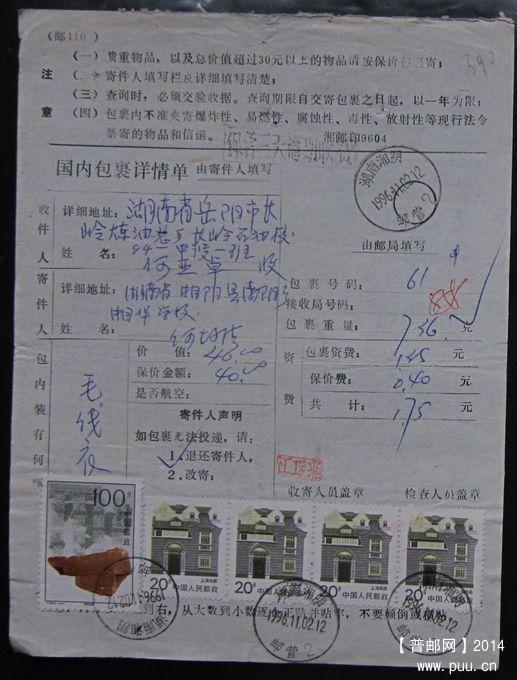 (邮110)
39
(一) 贵重物品，以及总价值超过30元以上的物品请按保价包裹寄；
注 (二) 寄件人填写栏应详细填写清楚；
(三) 查询时，必须交验收据。查询期限自交寄包裹之日起，以一年为限；
意 (四) 包裹内不准夹寄爆炸性、易燃性、腐蚀性、毒性、放射性等现行法令
禁寄的物品和信函。 湘邮印9604
国内包裹详情单 由寄件人填写
湖南湘阴
1996.11.02.12
邮营2
收件人
详细地址：湖南省岳阳市长
岭炼油总厂长岭石油校
姓名：
何亚卓 收
寄件人
详细地址：
湖南省湘阴县
学校
姓名：
由邮局填写
包裹号码： 61
接收局号码： 88
包裹重量： 736 元
资费
包裹资费： 1.35 元
保价费： 0.40 元
共计： 1.75 元
包内装有何
毛线衣
价值：
保价金额： 40.00
是否航空：
寄件人声明
如包裹无法投递，请：
1.退还寄件人，
2.改寄：
收寄人员盖章 检查人员盖章
100分
中国邮政
20分 上海民居 中国人民邮政
20分 上海民居 中国人民邮政
20分 上海民居 中国人民邮政
20分 上海民居 中国人民邮政
到右，从大数到小数逐 正贴并贴牢，不要倾倒或
湖南湘阴
1996.11.02.12
湖南湘阴
1996.11.02.12
邮营2
湖南湘阴
1996.11.02.12
邮营2
【普邮网】2014
www.puu.cn